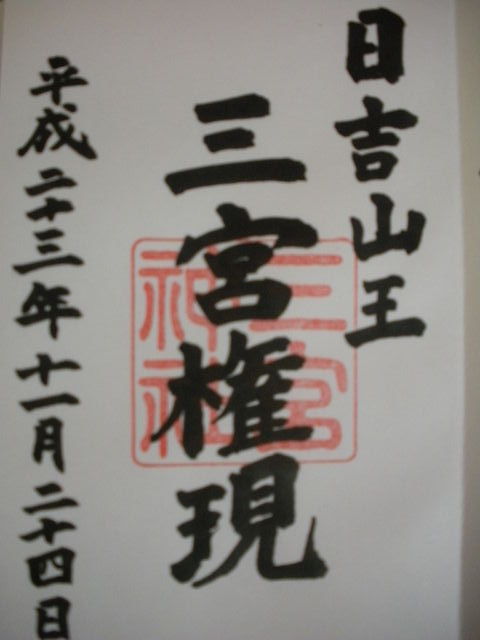 日吉山王
三宮権現
三宮
神社
平成二十三年十一月二十四日